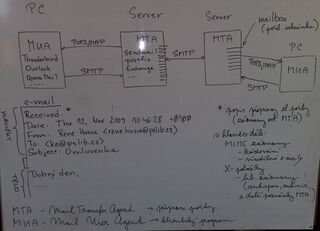 PC
Server
Server
mailbox
(pošt. schránka)
PC
MUA
Thunderbird
Outlook
Opera Mail
...
POP3/IMAP
SMTP
MTA
sendmail
postfix
Exchange
...
SMTP
MTA
POP3/IMAP
SMTP
MUA
e-mail
HLAVIČKY
Received: *
Date: Thu, 12 Nov 2009 10:46:28 +0100
From: Rene Horva <rene.horva@pslib.cz>
To: <ke@pslib.cz>
Subject: Omluvenka
TĚLO
Dobrý den,
...
* popis přepravy el. pošty
(záznamy od MTA)
v hlavičce dále
MIME záznamy
- kódování
X-položky
- lib. záznamy
(antispam, antivir,
a další poznámky MTA)
MTA - Mail Transfer Agent → přeprava pošty
MUA - Mail User Agent → klientský program